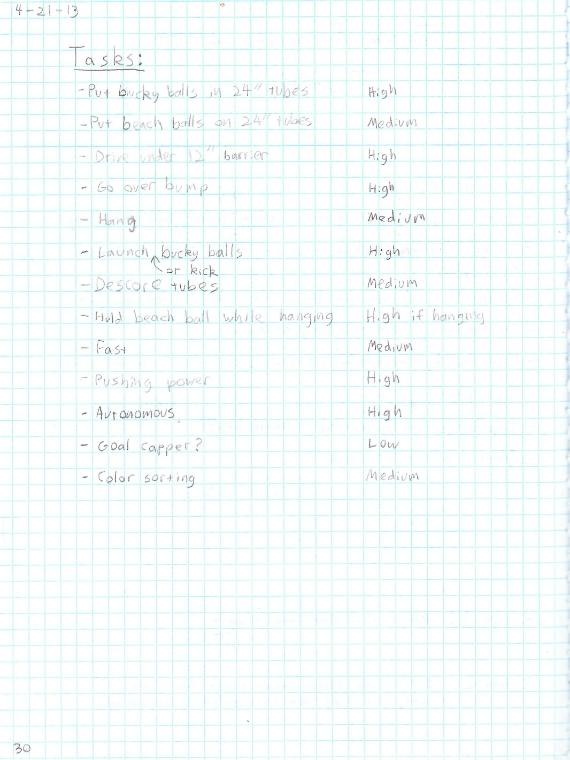 4-21-13
Tasks:
- Put bucky balls in 24" tubes High
- Put beach balls on 24" tubes Medium
- Drive under 12" barrier High
- Go over bump High
- Hang Medium
- Launch bucky balls High
or kick
- Descore tubes Medium
- Hold beach ball while hanging High if hanging
- Fast Medium
- Pushing power High
- Autonomous High
- Goal capper? Low
- Color sorting Medium
30